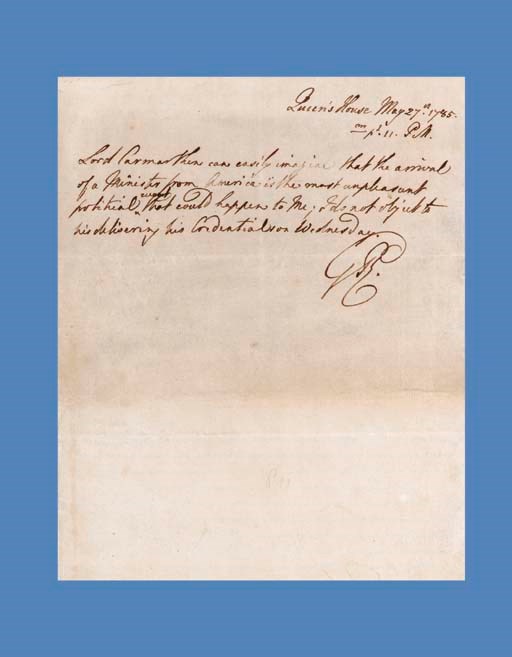 Queen's House May 27th. 1785.
m/pt. 11. P.M.
Lord Carmarthen can easily imagine that the arrival
of a Minister from America is the most unpleasant
political event that could happen to Me; I do not object to
his delivering his Credentials on Wednesday.
GR.